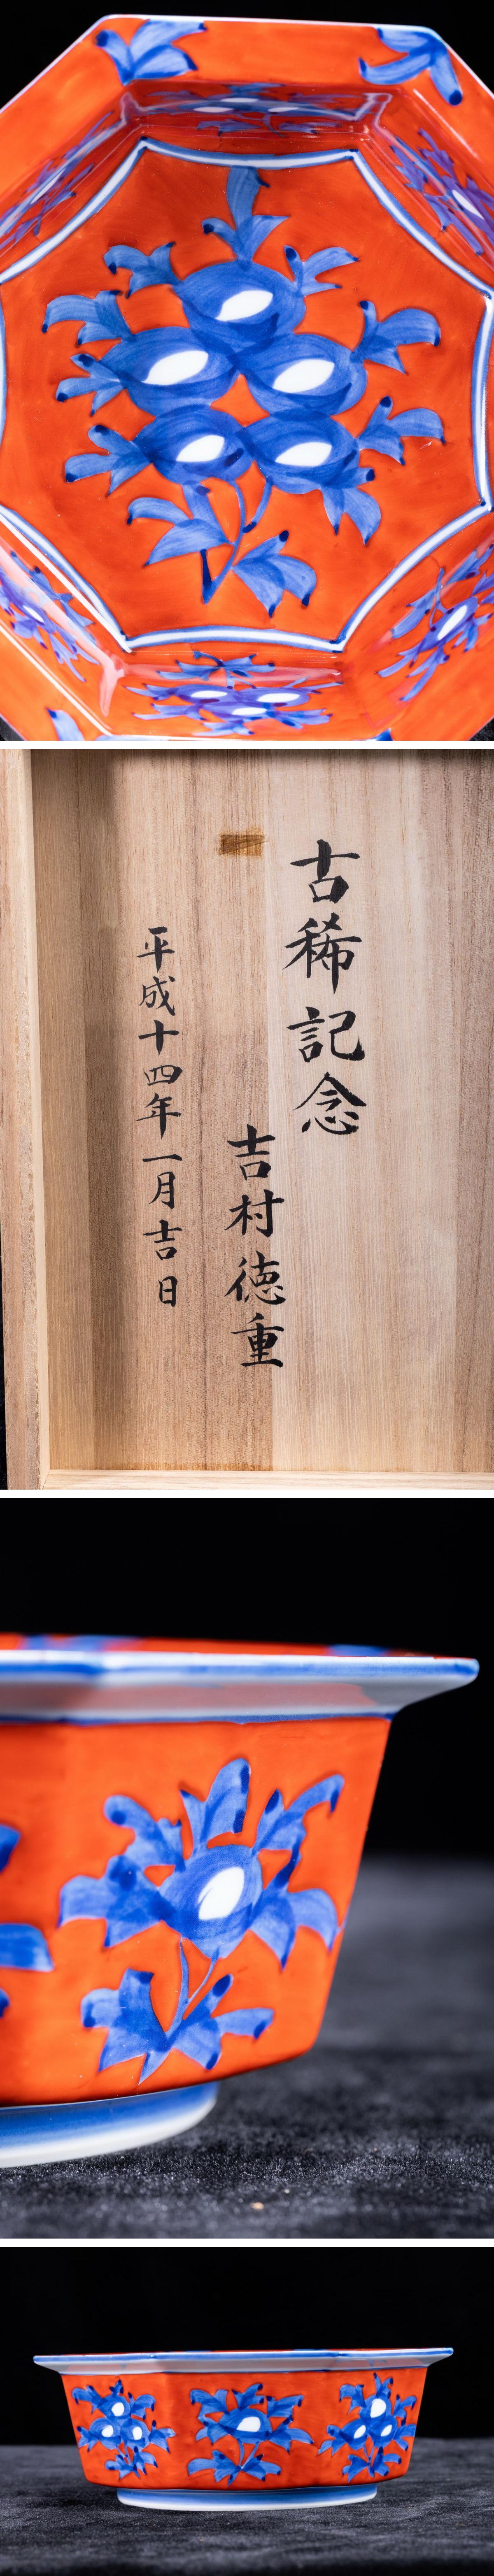 古稀記念
吉村徳重
平成十四年一月吉日